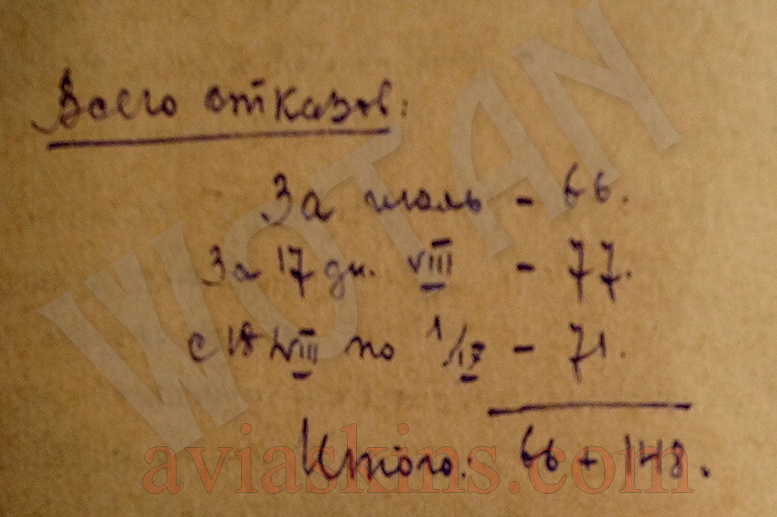 Всего отказов:
За июль - 66.
За 17 дн. VIII - 77.
с 18 VIII по 1/IX - 71.
Итого: 66 + 148.
WOTAN
aviaskins.com